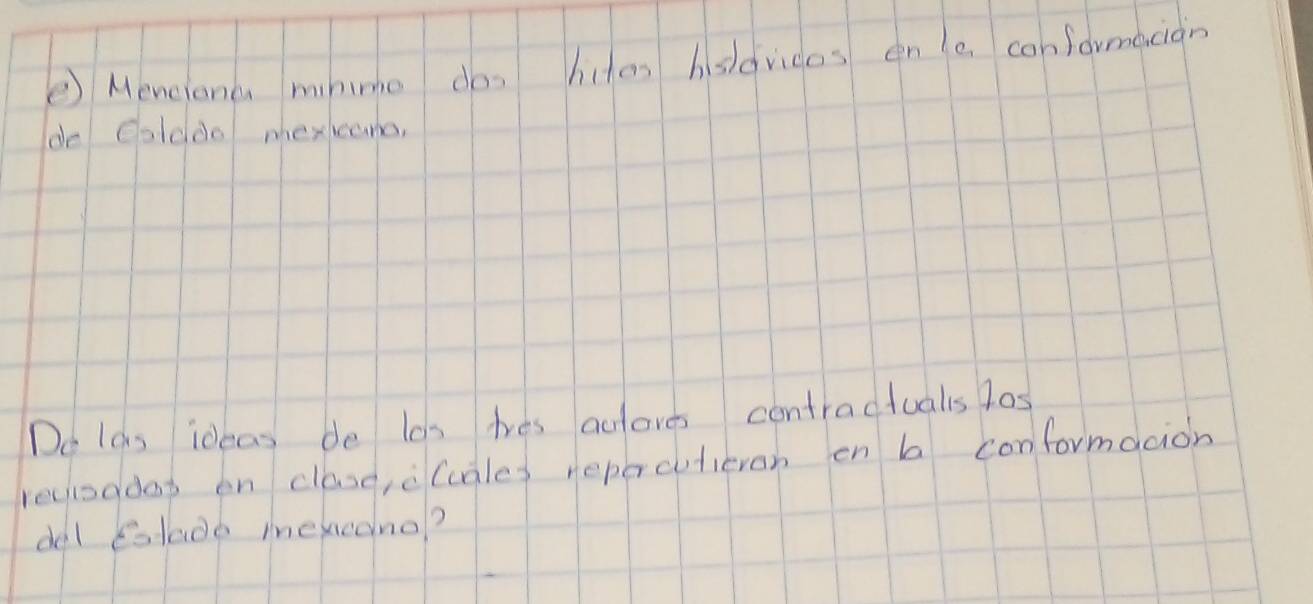 e) Menciona minimo dos hitos históricos en la conformación
de Estado mexicano.
De las ideas de los tres autores contractualistas
revisadas en clase, ¿Cuáles repercutieron en la conformación
del Estado mexicano?